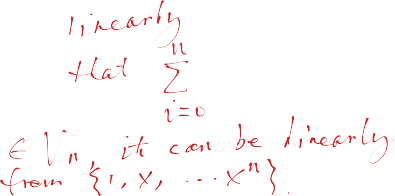 linearly
that ∑ n i=0
∈ Vn, it can be linearly
from {1, x, ... xⁿ}.